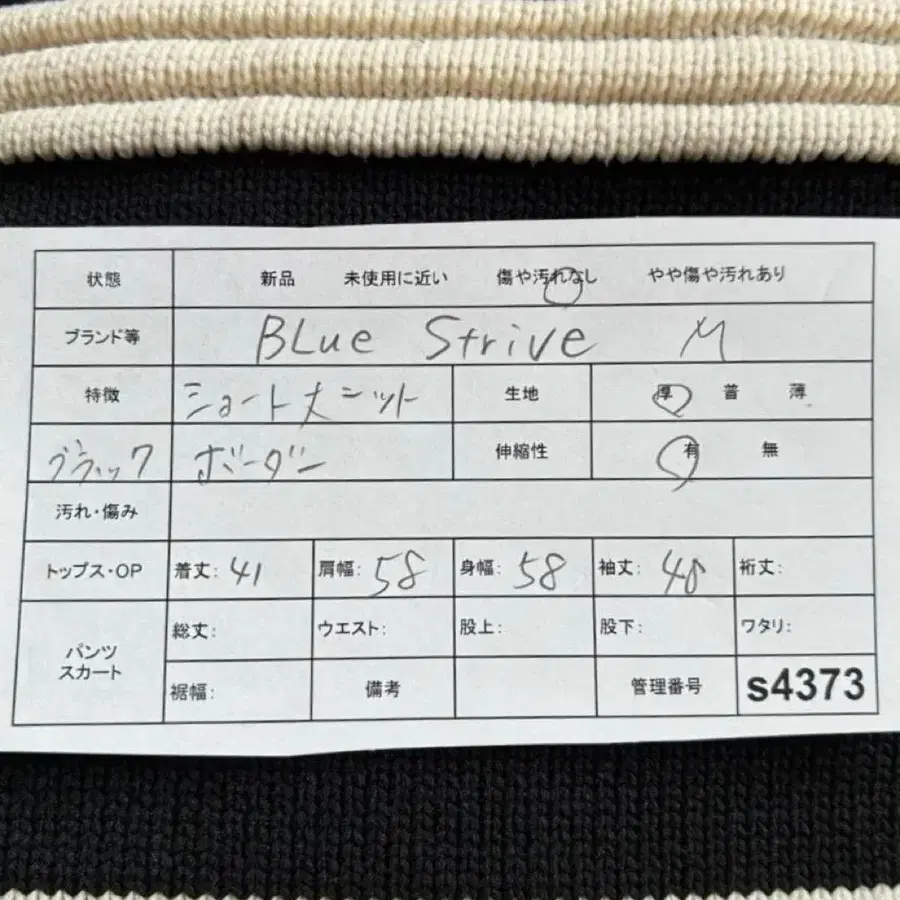 状態 新品 未使用に近い 傷や汚れなし やや傷や汚れあり
ブランド等 BLue Strive M
特徴 ショート丈ニット 生地 厚 普 薄
ブラック ボーダー 伸縮性 有 無
汚れ・傷み
トップス・OP 着丈: 41 肩幅: 58 身幅: 58 袖丈: 48 裄丈:
パンツ スカート 総丈: ウエスト: 股上: 股下: ワタリ:
裾幅: 備考 管理番号 s4373